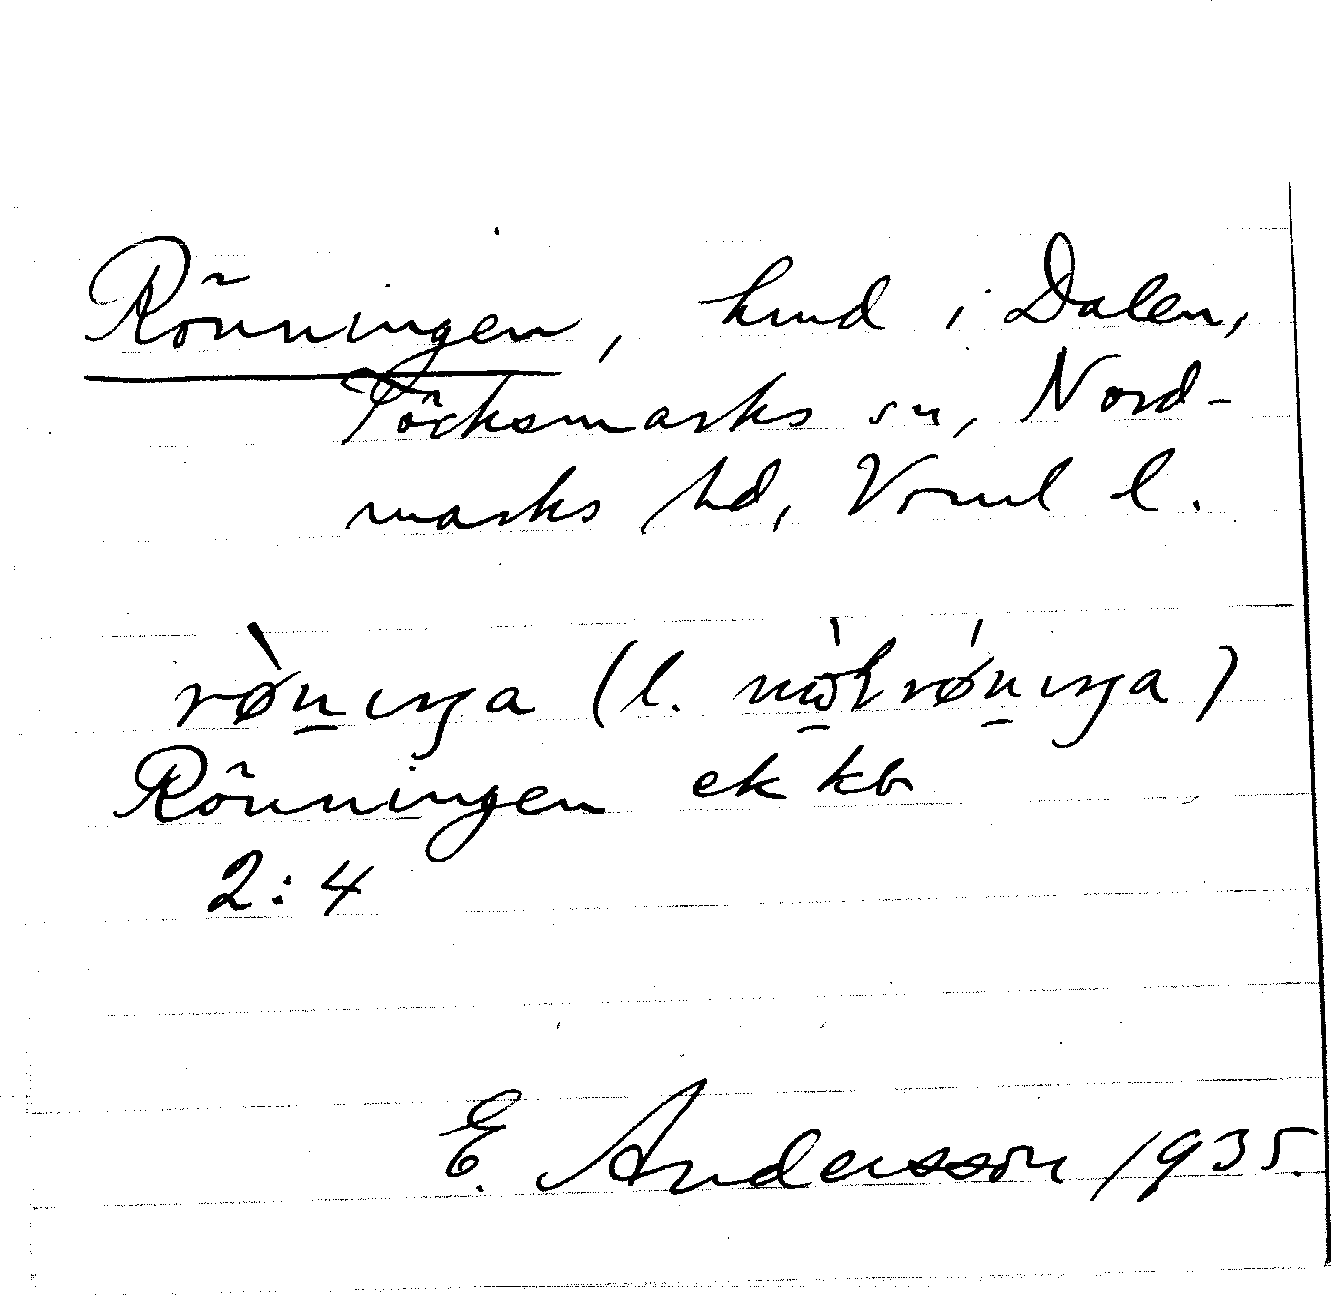 Rönningen, hmd i Dalen,
Töcksmarks sn, Nord-
marks hd, Vrml l.
rø̀n̲ıŋa (l.
Rönningen ek kb
2:4
E. Andersson 1935.